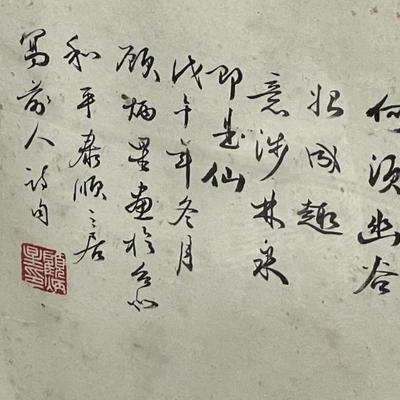 何須幽谷
始成趣
意涉林泉
即是仙
戊午年冬月
顧炳星畫於台北
和平泰順之居
寫前人詩句
顧炳星印